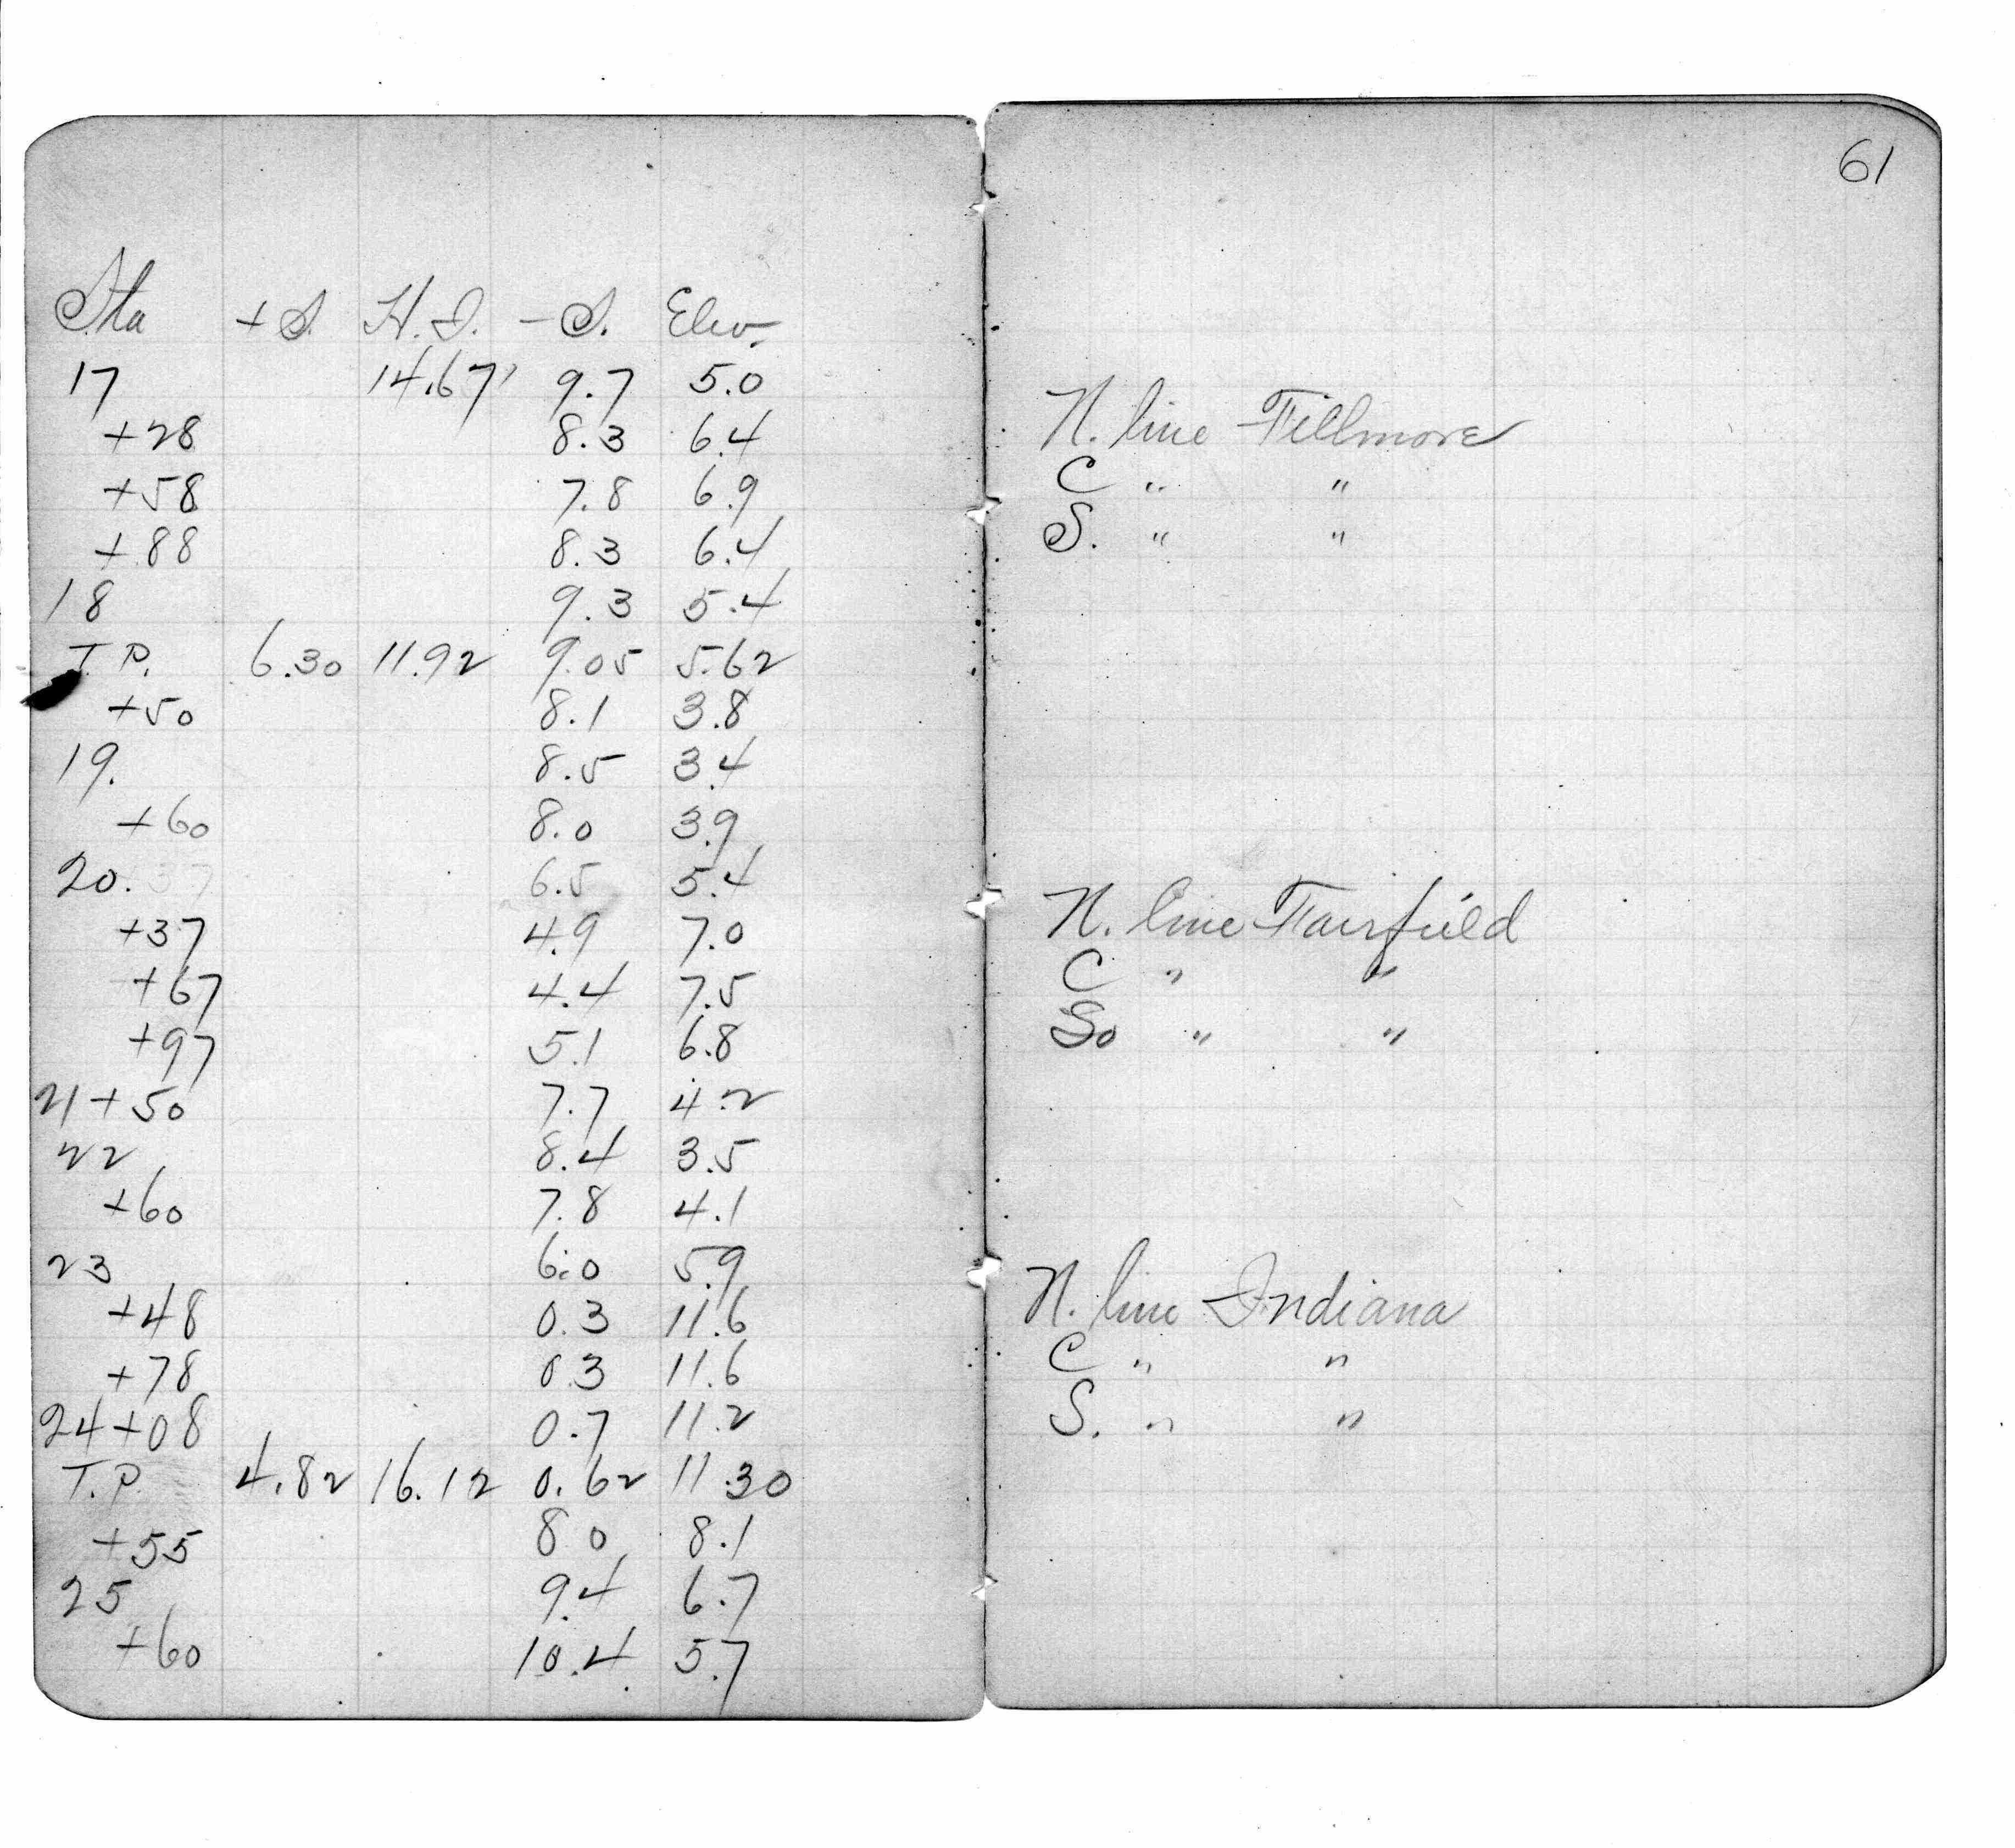 Sta +S. H.I. -S. Elev.
17 14.67' 9.7 5.0
+28 8.3 6.4
+58 7.8 6.9
+88 8.3 6.4
18 9.3 5.4
T.P. 6.30 11.92 9.05 5.62
+50 8.1 3.8
19. 8.5 3.4
+60 8.0 3.9
20. 6.5 5.4
+37 4.9 7.0
+67 4.4 7.5
+97 5.1 6.8
21+50 7.7 4.2
22 8.4 3.5
+60 7.8 4.1
23 6.0 5.9
+48 0.3 11.6
+78 0.3 11.6
24+08 0.7 11.2
T.P. 4.82 16.12 0.62 11.30
+55 8 0 8.1
25 9.4 6.7
+60 10.4 5.7
61
N. line Fillmore
C " "
S. " "
N. line Fairfield
C " "
So " "
N. line Indiana
C " "
S. " "